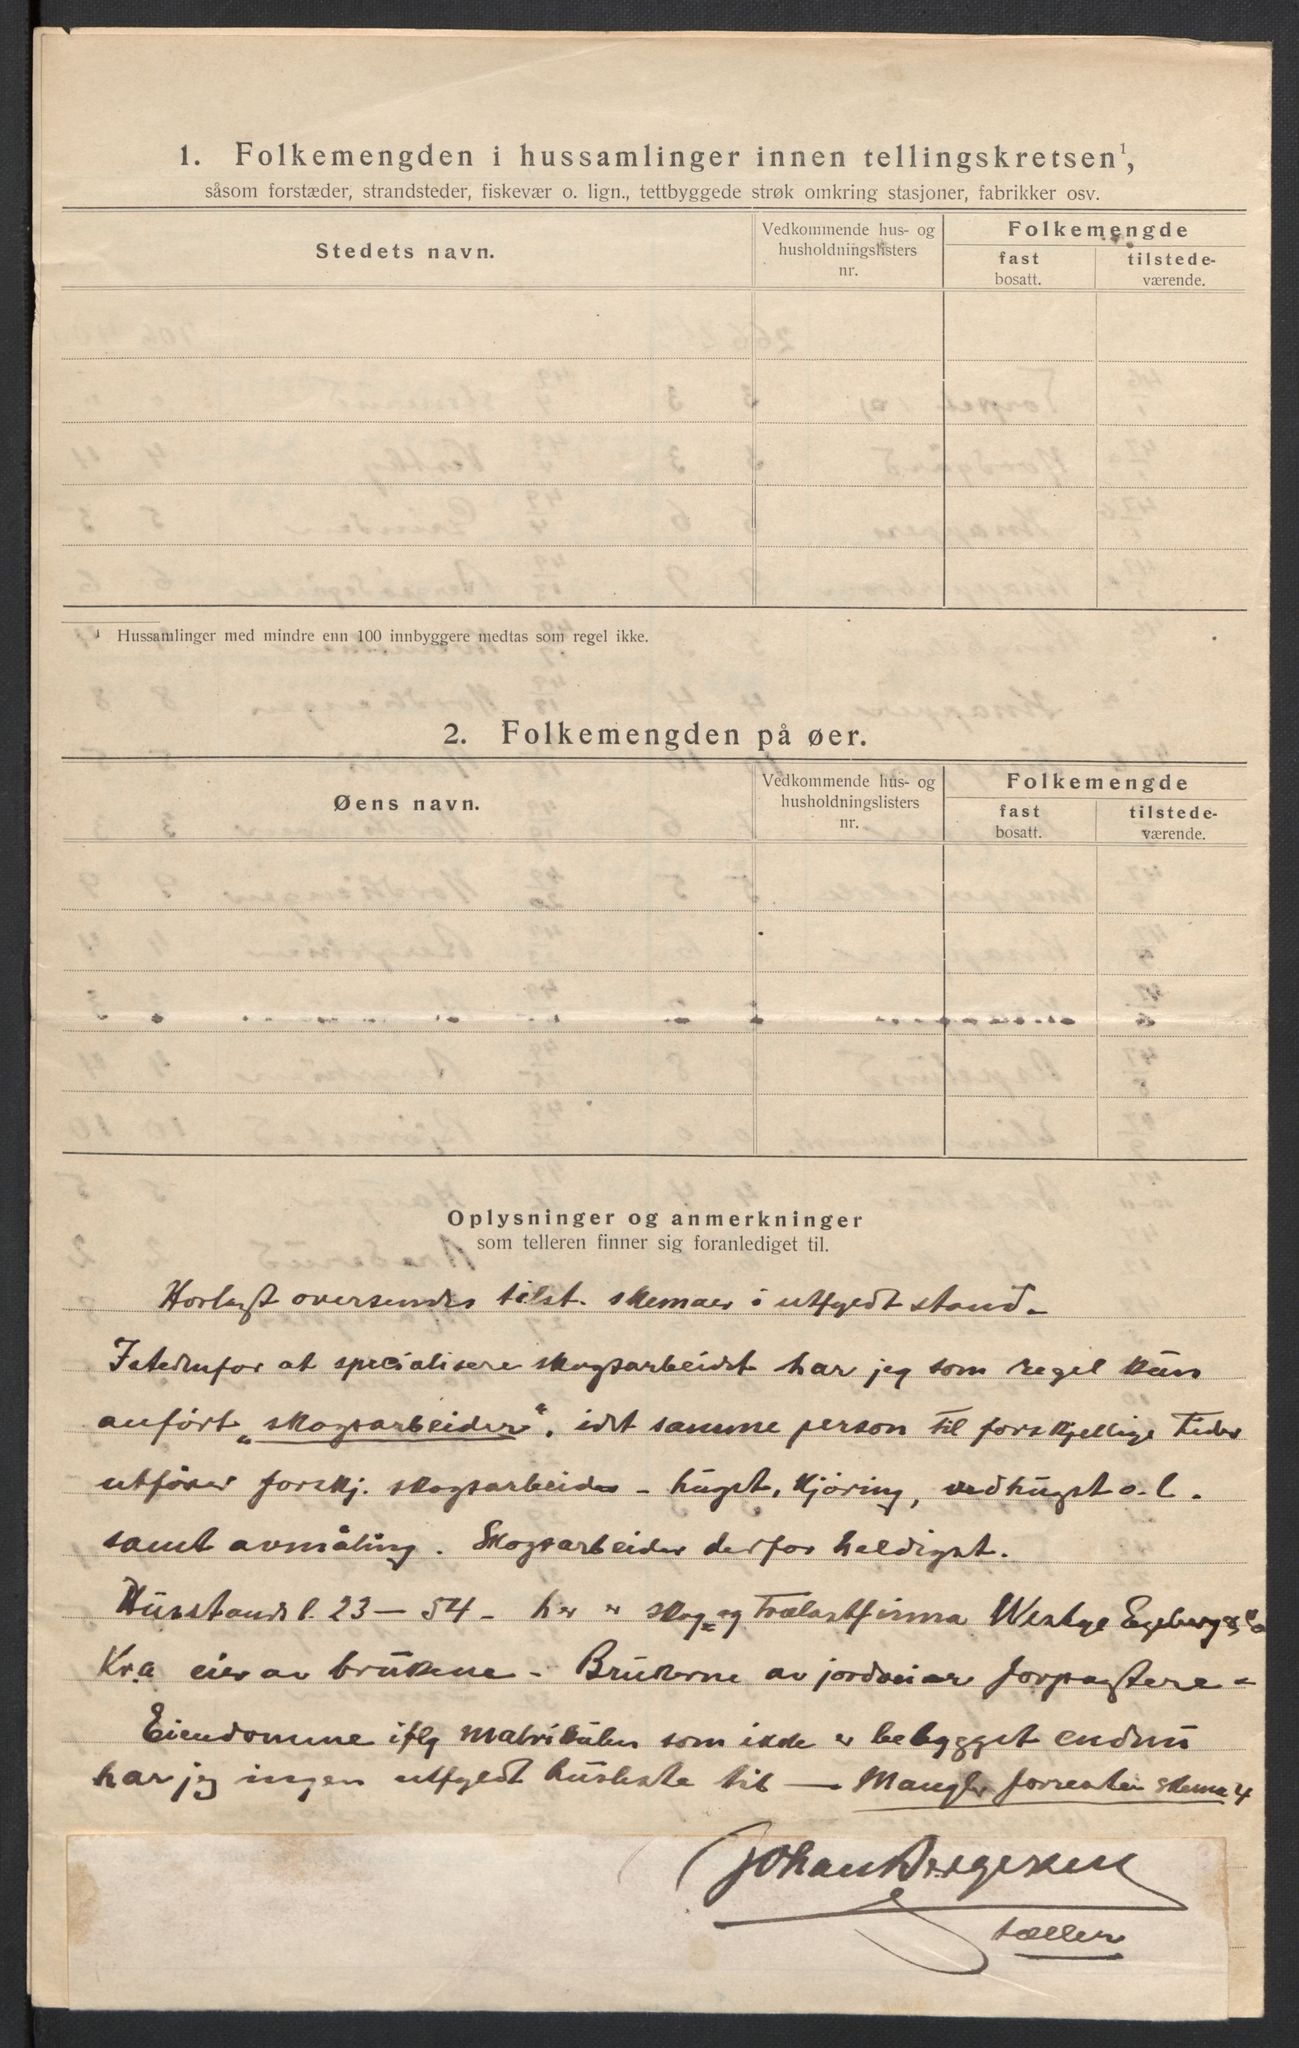 1. Folkemengden i hussamlinger innen tellingskretsen¹,
såsom forstæder, strandsteder, fiskevær o. lign., tettbyggede strøk omkring stasjoner, fabrikker osv.
Stedets navn.
Vedkommende hus- og husholdningslisters nr.
Folkemengde
fast bosatt.
tilstede-værende.
¹ Hussamlinger med mindre enn 100 innbyggere medtas som regel ikke.
2. Folkemengden på øer.
Øens navn.
Vedkommende hus- og husholdningslisters nr.
Folkemengde
fast bosatt.
tilstede-værende.
Oplysninger og anmerkninger
som telleren finner sig foranlediget til.
Horlagt oversendes tilst. skemaer i utfyldt stand -
Istedenfor at specialisere skogsarbeidet har jeg som regel kun
anført "skogsarbeider", idet samme person til forskjellige tider
utfører forskj. skogsarbeide - hugst, kjøring, vedhugst o.l.
samt avmåling. Skogsarbeider derfor heldigst.
Husstandsl. 23 - 54 - her er skog og Trælastfirma Westye Egeberg & Co
Kr.a eier av brukene - Brukerne av jordveiar forpagtere -
Eiendomme iflg matrikulen som ikke er bebygget endnu
har jeg ingen utfyldt husliste til - Mangler forresten skema 4
Johan Bergersen
tæller